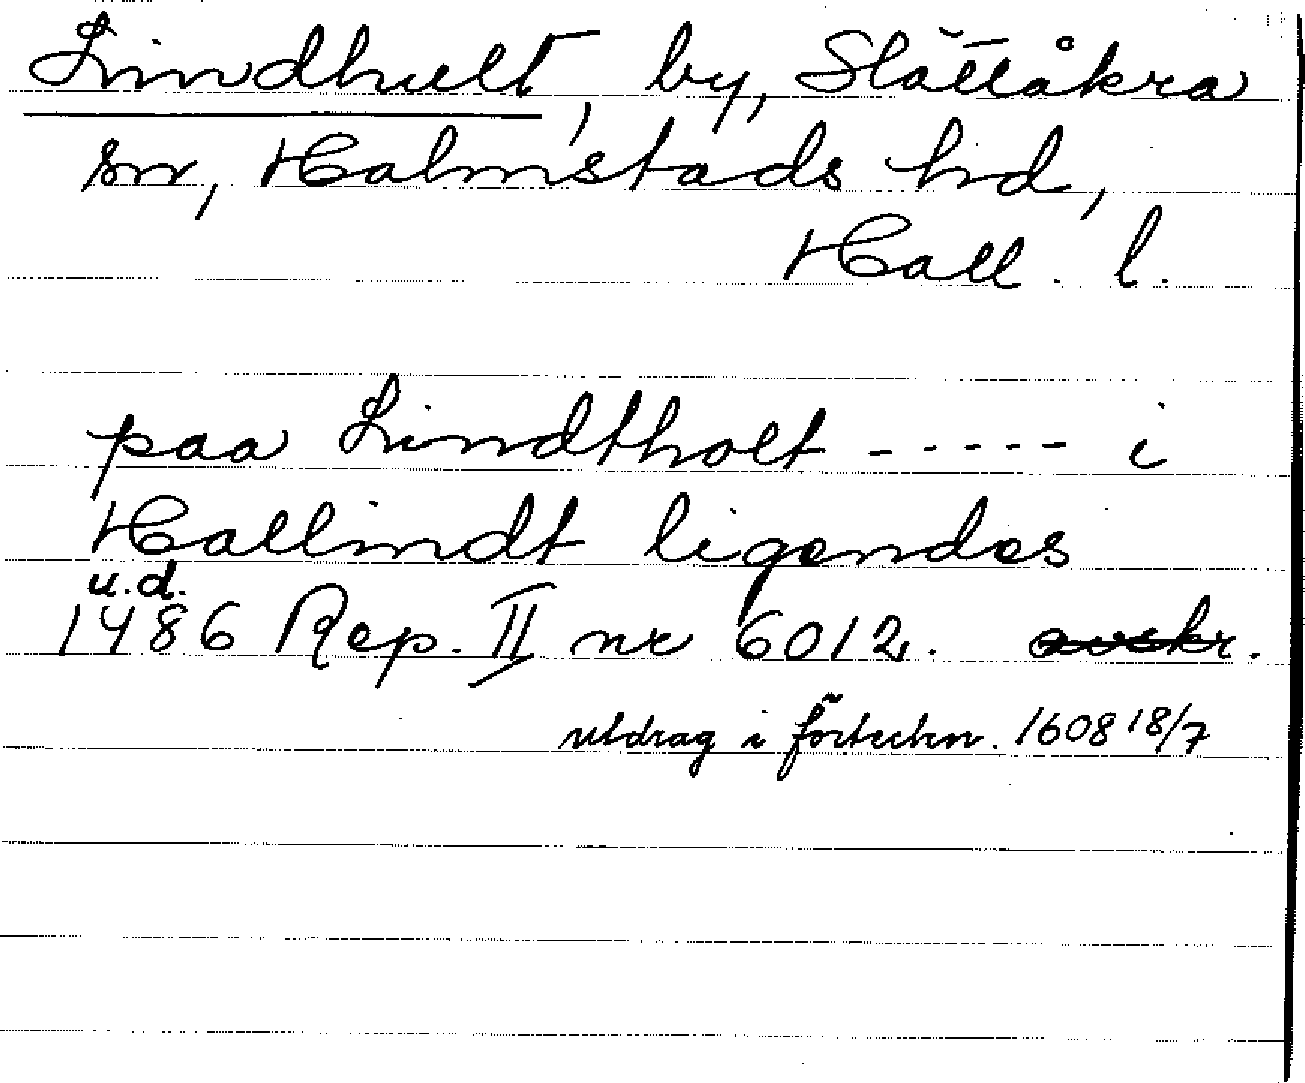 Lindhult, by, Slättåkra
sn, Halmstads hd,
Hall. l.
paa Lindtholt ----- i
Hallindt ligendes
u.d.
1486 Rep. II nr 6012. avskr.
utdrag i förteckn. 1608 18/7